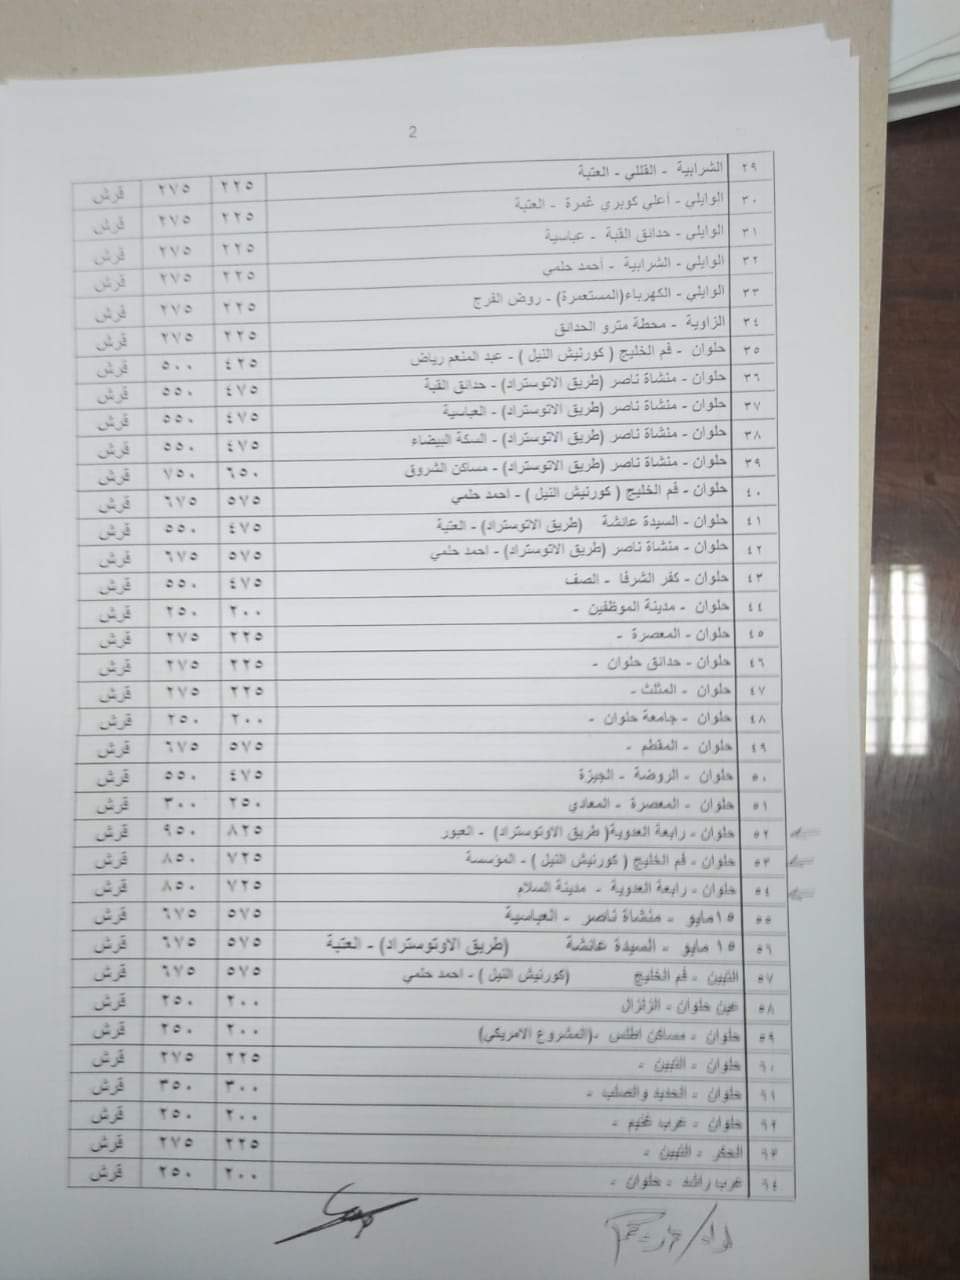 2
٢٩ الشرابية - القللي - العتبة ٢٢٥ ٢٧٥ قرش
٣٠ الوايلي - أعلي كوبري غمرة - العتبة ٢٢٥ ٢٧٥ قرش
٣١ الوايلي - حدائق القبة - عباسية ٢٢٥ ٢٧٥ قرش
٣٢ الوايلي - الشرابية - أحمد حلمي ٢٢٥ ٢٧٥ قرش
٣٣ الوايلي - الكهرباء(المستعمرة) - روض الفرج ٢٢٥ ٢٧٥ قرش
٣٤ الزاوية - محطة مترو الحدائق ٢٢٥ ٢٧٥ قرش
٣٥ حلوان - فم الخليج ( كورنيش النيل ) - عبد المنعم رياض ٤٢٥ ٥٠٠ قرش
٣٦ حلوان - منشاة ناصر (طريق الاتوستراد) - حدائق القبة ٤٧٥ ٥٥٠ قرش
٣٧ حلوان - منشاة ناصر (طريق الاتوستراد) - العباسية ٤٧٥ ٥٥٠ قرش
٣٨ حلوان - منشاة ناصر (طريق الاتوستراد) - السكة البيضاء ٤٧٥ ٥٥٠ قرش
٣٩ حلوان - منشاة ناصر (طريق الاتوستراد) - مساكن الشروق ٦٥٠ ٧٥٠ قرش
٤٠ حلوان - فم الخليج ( كورنيش النيل ) - احمد حلمي ٥٧٥ ٦٧٥ قرش
٤١ حلوان - السيدة عائشة (طريق الاتوستراد) - العتبة ٤٧٥ ٥٥٠ قرش
٤٢ حلوان - منشاة ناصر (طريق الاتوستراد) - احمد حلمي ٥٧٥ ٦٧٥ قرش
٤٣ حلوان - كفر الشرفا - الصف ٤٧٥ ٥٥٠ قرش
٤٤ حلوان - مدينة الموظفين - ٢٠٠ ٢٥٠ قرش
٤٥ حلوان - المعصرة - ٢٢٥ ٢٧٥ قرش
٤٦ حلوان - حدائق حلوان - ٢٢٥ ٢٧٥ قرش
٤٧ حلوان - المثلث - ٢٢٥ ٢٧٥ قرش
٤٨ حلوان - جامعة حلوان - ٢٠٠ ٢٥٠ قرش
٤٩ حلوان - المقطم - ٥٧٥ ٦٧٥ قرش
٥٠ حلوان - الروضة - الجيزة ٤٧٥ ٥٥٠ قرش
٥١ حلوان - المعصرة - المعادي ٢٥٠ ٣٠٠ قرش
٥٢ حلوان - رابعة العدوية( طريق الاوتوستراد) - العبور ٨٢٥ ٩٥٠ قرش
٥٣ حلوان - فم الخليج ( كورنيش النيل ) - المؤسسة ٧٢٥ ٨٥٠ قرش
٥٤ حلوان - رابعة العدوية - مدينة السلام ٧٢٥ ٨٥٠ قرش
٥٥ ١٥مايو - منشاة ناصر - العباسية ٥٧٥ ٦٧٥ قرش
٥٦ ١٥ مايو - السيدة عائشة (طريق الاوتوستراد) - العتبة ٥٧٥ ٦٧٥ قرش
٥٧ التبين - فم الخليج (كورنيش النيل ) - احمد حلمي ٥٧٥ ٦٧٥ قرش
٥٨ عين حلوان - الزلزال ٢٠٠ ٢٥٠ قرش
٥٩ حلوان - مساكن اطلس -(المشروع الامريكي) ٢٠٠ ٢٥٠ قرش
٦٠ حلوان - التبين - ٢٢٥ ٢٧٥ قرش
٦١ حلوان - الحديد والصلب - ٣٠٠ ٣٥٠ قرش
٦٢ حلوان - عرب غنيم - ٢٠٠ ٢٥٠ قرش
٦٣ الحكر - التبين - ٢٢٥ ٢٧٥ قرش
٦٤ عرب راشد - حلوان - ٢٠٠ ٢٥٠ قرش